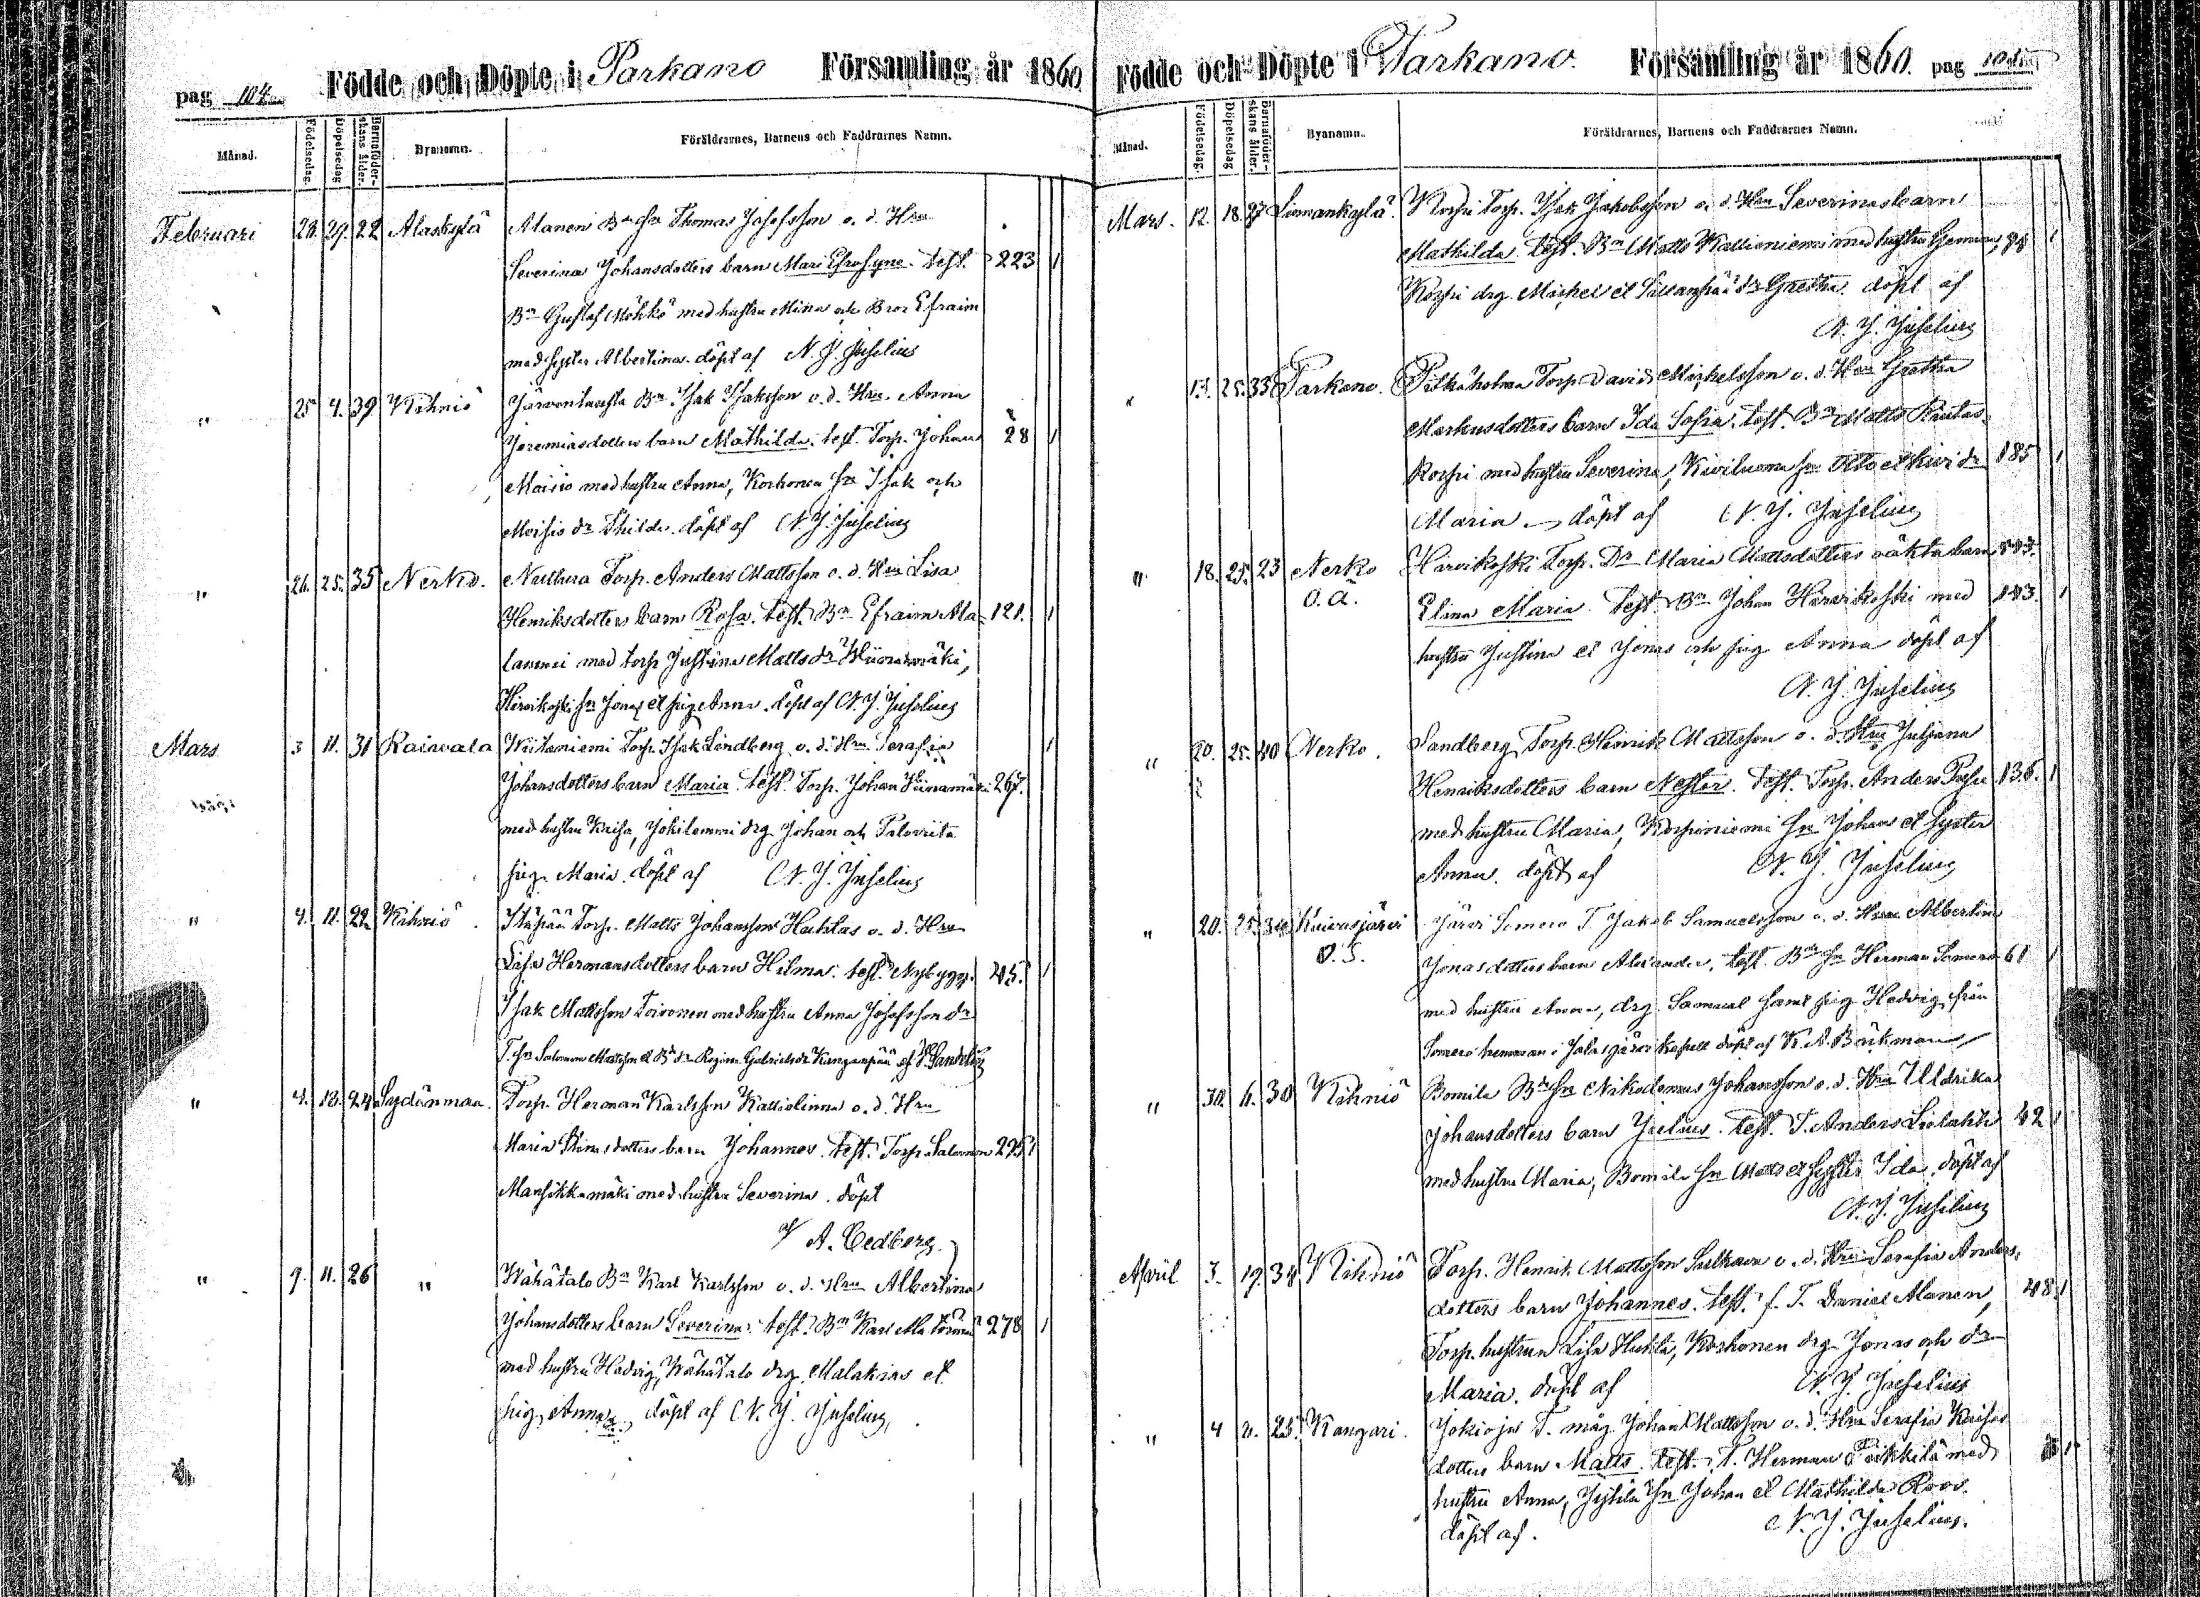 pag 104. Födde och Döpte i Parkano Församling år 1860
Månad. Födelsedag. Döpelsedag Barnaföderskans ålder. Bynamn. Föräldrarnes, Barnens och Faddrarnes Namn.
Februari 28. 29. 22 Alaskylä Alanen Bn Sn Thomas Josefsson o. d. Hru
Severina Johansdotters barn Mari Efrosyne. test. 223
Bn Gustaf Möhkö med hustru Mina och Bror Efraim
med syster Albertina. döpt af N. J. Juselius
" 25 4. 39 Kihniö Järventausta Bn Isak Isaksson o. d. Hru Anna
Jeremiasdotters barn Mathilda. test. Torp. Johan 28
Moisio med hustru Anna, Korhonen sn Isak och
Moisio dr Thilda döpt af N. J. Juselius
" 26. 25. 35 Nerko. Torp. Anders Mattsson o. d. Hru Lisa
Henriksdotters barn Rosa. test. Bn Efraim Ala- 121.
lammi med torp Justina Matts dr
Hirvikoski sn Jonas et pig Anna. döpt af N. J. Juselius
Mars 3 11. 31 Raivala Torp. Isak Lindberg o. d. Hru Serafia
Johansdotters barn Maria. test. Torp. Johan 267.
med hustru Kaisa, Jokilammi drg Johan och Paloviita
pig. Maria. döpt af N. J. Juselius
" 4. 11. 22 Kihniö. Itäpää Torp. Matts Johansson Huhtas o. d. Hru
Lisa Hermansdotters barn Hilma. test. Nybygg. 45.
Isak Mattsson Toivonen med hustru Anna Josefsson dr
T. sn Salomon Mattsson et Bd dr Regina Gabrielsdr Kangaspää af Sandelin
" 4. 18. 24 Sydänmaa. Torp. Herman Karlsson Kalliolinna o. d. Hru
Maria dotters barn Johannes. test. Torp. Salomon 225
Mansikkamäki med hustru Severina. döpt
A. Cedberg.
" 9. 11. 26 " Wähätalo Bn Karl Karlsson o. d. Hru Albertina
Johansdotters barn Severina. test. Bn Karl Ala 278
med hustru Hedvig, Wähätalo drg. Malakias et
pig. Anna, döpt af N. J. Juselius,
Födde och Döpte i Parkano. Församling år 1860. pag 105.
Månad. Födelsedag. Döpelsedag Barnaföderskans ålder. Bynamn. Föräldrarnes, Barnens och Faddrarnes Namn.
Mars. 12. 18. 27 Linnankylä. Korpi Torp. Isak Jakobsson o. d. Hru Severinas barn
Mathilda. test. Bn Matts Kallioniemi med hustru
Korpi drg. Mickel et Sillanpää dr Gretha. döpt af
N. J. Juselius
" 13. 25. 33 Parkano. Torp David Mickelsson o. d. Hru Gretha
Markusdotters barn Ida Sofia. test. Bn Matts Rantas
Korpi med hustru Severina, Kiviluoma sn Otto et Kivi dr 185
Maria döpt af N. J. Juselius
" 18. 25. 23 Nerko Hirvikoski Torp. Dr Maria Mattsdotters oäkta barn
O. ä. Elina Maria. test. Bn Johan Hirvikoski med 123.
hustru Justina et Jonas och pig Anna döpt af
N. J. Juselius
" 20. 25. 40 Nerko. Sandberg Torp. Henrik Mattsson o. d. Hru Juliana
Henriksdotters barn Nestor. test. Torp. Anders 136.
med hustru Maria, Korpiniemi sn Johan et syster
Anna. döpt af N. J. Juselius
" 20. 25. 34 Kuivasjärvi Järvi Somero T. Jakob Samuelsson o. d. Hru Albertina
O. S. Jonasdotters barn Alexander. test. Bn Sn Herman Somero 61
med hustru Anna, drg. Samuel samt pig Hedvig från
Somero hemman i Jalasjärvi kapell döpt af K. A. Bäckman
" 30. 6. 30 Kihniö Bomila Bn Sn Nikodemus Johansson o. d. Hru Ulldrika
Johansdotters barn Julius. test. T. Anders 42
med hustru Maria, Bomila sn Matts et syster Ida. döpt af
N. J. Juselius
April 3. 19. 34 Kihniö Torp. Henrik Mattsson o. d. Hru Serafia Anders
dotters barn Johannes. test. f. T. Daniel Alanen, 48.
Torp. hustrun Lisa Huhta, Korhonen drg. Jonas och dr
Maria. döpt af N. J. Juselius
" 4 25. Kangari. Jokioja T. måg Johan Mattsson o. d. Hru Serafia Kaisas
dotters barn Matts. test. T. Herman med
hustru Anna, sn Johan et Mathilda Roos.
döpt af. N. J. Juselius.